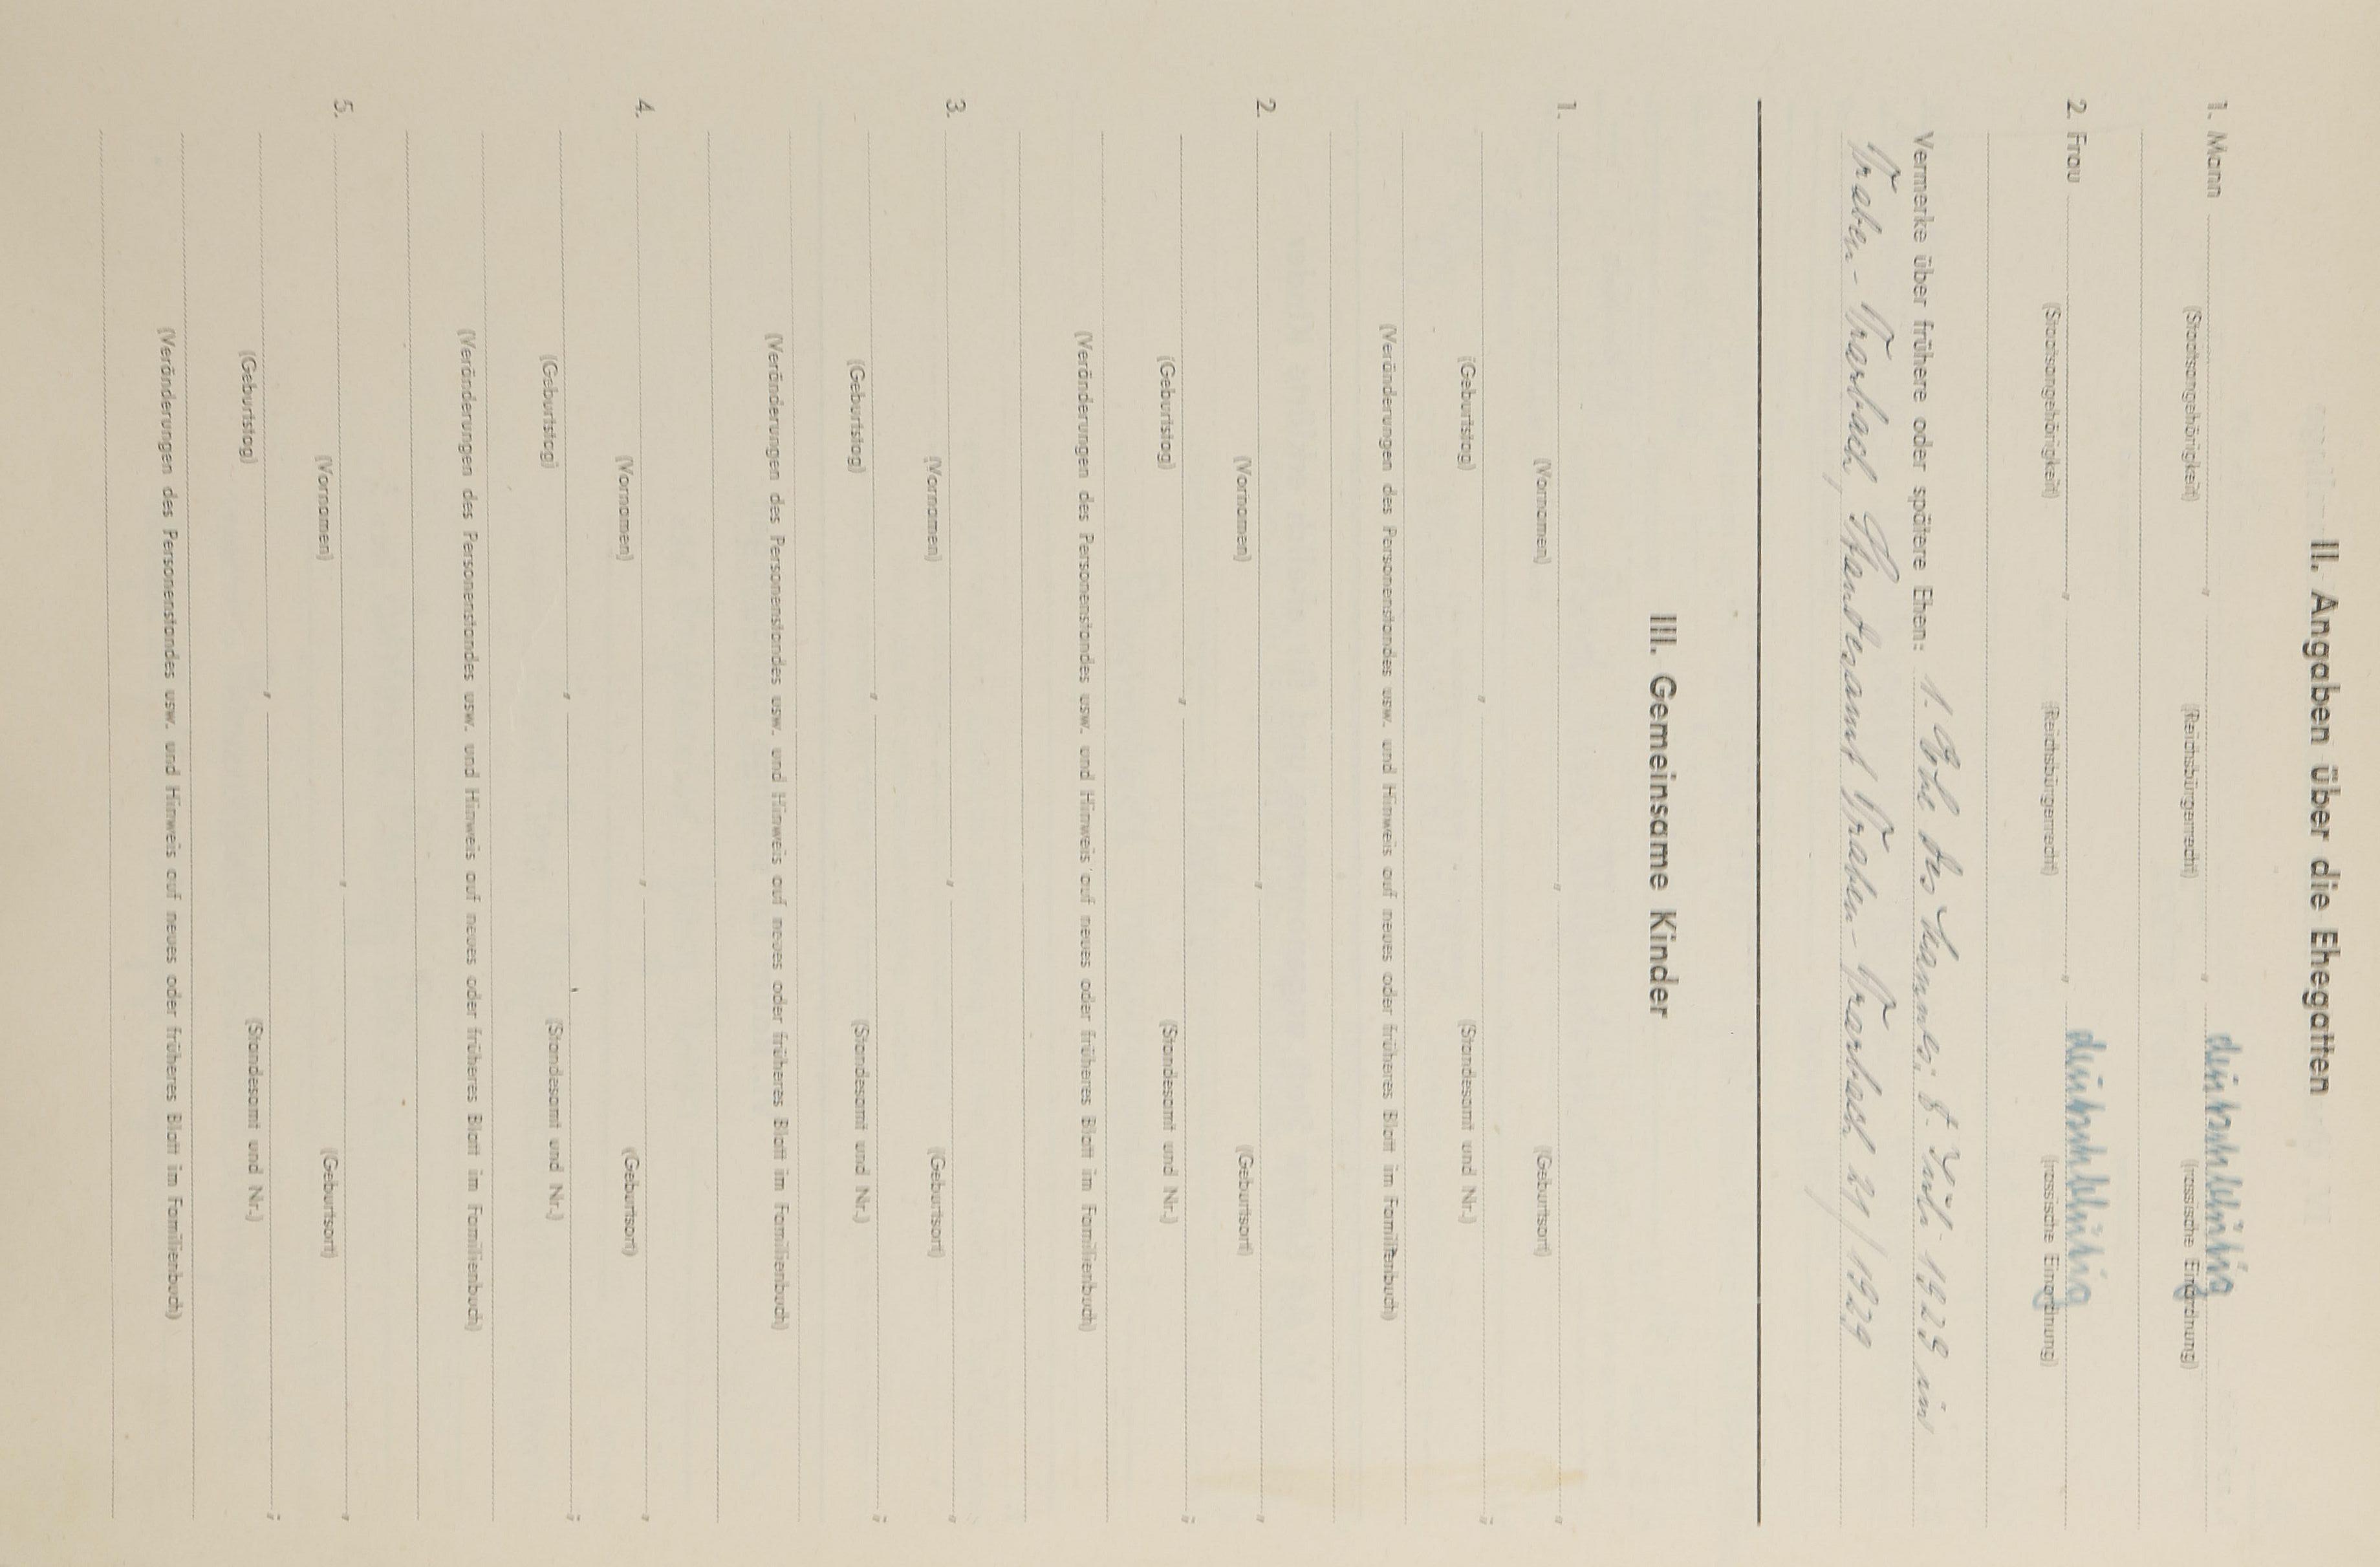 II. Angaben über die Ehegatten
1. Mann , , deutschblütig
(Staatsangehörigkeit) (Reichsbürgerrecht) (rassische Einordnung)
2. Frau , , deutschblütig
(Staatsangehörigkeit) (Reichsbürgerrecht) (rassische Einordnung)
Vermerke über frühere oder spätere Ehen: 1. Ehe des Mannes: 8. Juli 1929 in
Traben-Trarbach, Standesamt Traben-Trarbach 21/1929
III. Gemeinsame Kinder
1. , ,
(Vornamen) (Geburtsort)
, ;
(Geburtstag) (Standesamt und Nr.)
(Veränderungen des Personenstandes usw. und Hinweis auf neues oder früheres Blatt im Familienbuch)
2. , ,
(Vornamen) (Geburtsort)
, ;
(Geburtstag) (Standesamt und Nr.)
(Veränderungen des Personenstandes usw. und Hinweis auf neues oder früheres Blatt im Familienbuch)
3. , ,
(Vornamen) (Geburtsort)
, ;
(Geburtstag) (Standesamt und Nr.)
(Veränderungen des Personenstandes usw. und Hinweis auf neues oder früheres Blatt im Familienbuch)
4. , ,
(Vornamen) (Geburtsort)
, ;
(Geburtstag) (Standesamt und Nr.)
(Veränderungen des Personenstandes usw. und Hinweis auf neues oder früheres Blatt im Familienbuch)
5. , ,
(Vornamen) (Geburtsort)
, ;
(Geburtstag) (Standesamt und Nr.)
(Veränderungen des Personenstandes usw. und Hinweis auf neues oder früheres Blatt im Familienbuch)